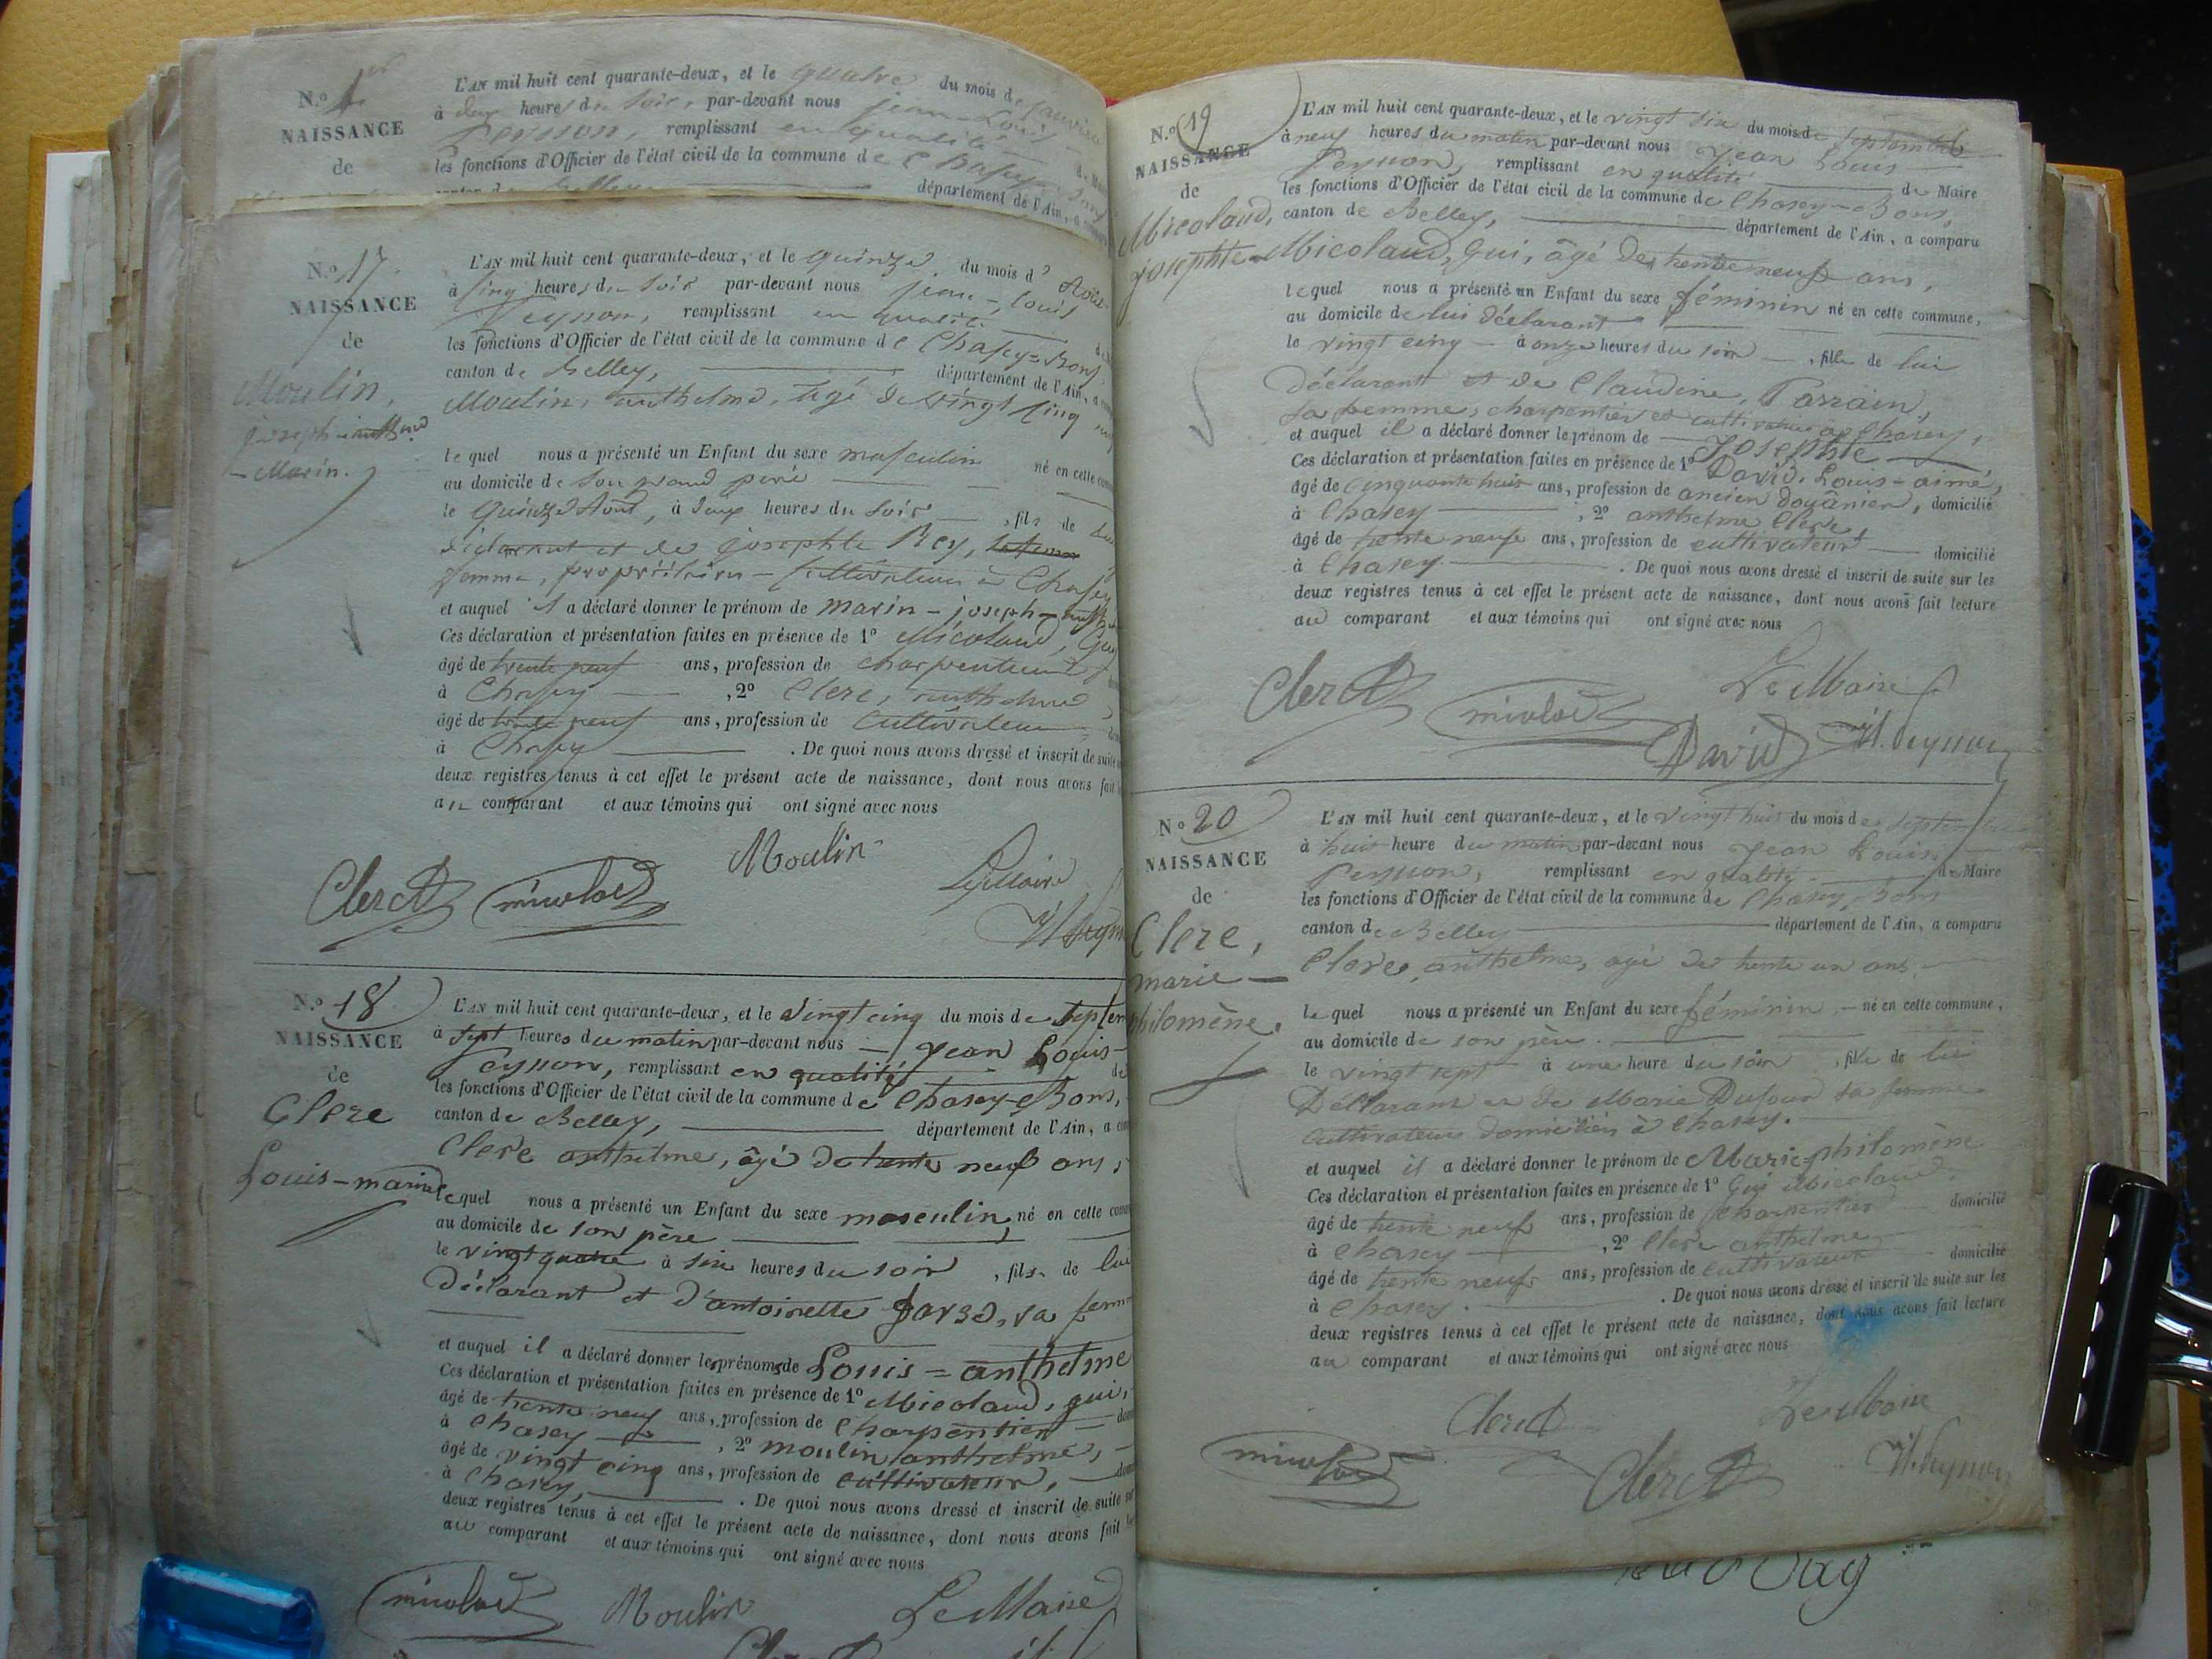 N.o 1er
NAISSANCE
de
L'AN mil huit cent quarante-deux, et le quatre du mois de janvier
à deux heures du soir, par-devant nous jean-Louis
Peysson, remplissant en qualité de Maire
les fonctions d'Officier de l'état civil de la commune de Chasey-Bons
canton de Belley, département de l'Ain, a
N.o 17.
NAISSANCE
de
Moulin,
joseph-anthme
-Marin.
L'AN mil huit cent quarante-deux, et le quinze du mois d'Août
à cinq heures du soir par-devant nous jean-Louis
Peysson, remplissant en qualité
les fonctions d'Officier de l'état civil de la commune de Chasey-Bons,
canton de Belley, département de l'Ain, a
Moulin, anthelme, âgé de vingt cinq
lequel nous a présenté un Enfant du sexe masculin né en cette
au domicile de son grand père
le quinze Août, à deux heures du soir, fils de lui
déclarant et de josephte Rey,
femme, propriétaires-cultivateurs à Chasey
et auquel il a déclaré donner le prénom de marin-joseph-
Ces déclaration et présentation faites en présence de 1o Micolaud, Guy
âgé de trente neuf ans, profession de charpentier
à Chasey, 2o Clerc, anthelme
âgé de trente neuf ans, profession de cultivateur
à Chasey. De quoi nous avons dressé et inscrit de suite
deux registres tenus à cet effet le présent acte de naissance, dont nous avons fait
au comparant et aux témoins qui ont signé avec nous
Moulin
Clerc micolod Le Maire
N.o 18
NAISSANCE
de
Clerc
Louis-marie
L'AN mil huit cent quarante-deux, et le vingt cinq du mois de septem
à sept heures du matin par-devant nous Jean Louis-
Peysson, remplissant en qualité de
les fonctions d'Officier de l'état civil de la commune de Chasey-Bons,
canton de Belley, département de l'Ain, a
Clerc anthelme, âgé de trente neuf ans,
lequel nous a présenté un Enfant du sexe masculin, né en cette com
au domicile de son père
le vingt quatre à six heures du soir, fils de lui
déclarant et d'antoinette sa fem
et auquel il a déclaré donner les prénoms de Louis=anthelme
Ces déclaration et présentation faites en présence de 1o Micolaud, gui,
âgé de trente neuf ans, profession de Charpentier
à Chasey, 2o moulin anthelme,
âgé de vingt cinq ans, profession de cultivateur,
à Chasey, . De quoi nous avons dressé et inscrit de suite
deux registres tenus à cet effet le présent acte de naissance, dont nous avons fait
au comparant et aux témoins qui ont signé avec nous
micolod Moulin Le Maire
N.o 19
NAISSANCE
de
Micolaud,
josephte
L'AN mil huit cent quarante-deux, et le vingt six du mois de septembre
à neuf heures du matin par-devant nous Jean Louis
Peysson, remplissant en qualité de Maire
les fonctions d'Officier de l'état civil de la commune de Chasey-Bons,
canton de Belley, département de l'Ain, a comparu
Micolaud, Gui, âgé de trente neuf ans,
lequel nous a présenté un Enfant du sexe féminin né en cette commune,
au domicile de lui déclarant
le vingt cinq à onze heures du soir, fille de lui
déclarant et de Claudine, Parrain,
sa femme, charpentier et cultivateur à Chasey,
et auquel il a déclaré donner le prénom de Josephte
Ces déclaration et présentation faites en présence de 1o David, Louis-aimé,
âgé de cinquante huit ans, profession de ancien douânier, domicilié
à Chasey, 2o anthelme Clerc,
âgé de trente neuf ans, profession de cultivateur domicilié
à Chasey. De quoi nous avons dressé et inscrit de suite sur les
deux registres tenus à cet effet le présent acte de naissance, dont nous avons fait lecture
au comparant et aux témoins qui ont signé avec nous
Le Maire
Clerc micolod
David Peysson
No 20
NAISSANCE
de
Clerc,
marie-
philomène.
L'AN mil huit cent quarante-deux, et le vingt huit du mois de septembre
à huit heure du matin par-devant nous Jean Louis
Peysson, remplissant en qualité de Maire
les fonctions d'Officier de l'état civil de la commune de Chasey-Bons
canton de Belley département de l'Ain, a comparu
Clerc, anthelme, âgé de trente un ans.
lequel nous a présenté un Enfant du sexe féminin né en cette commune,
au domicile de son père.
le vingt sept à une heure du soir, fille de lui
Déclarant et de Marie Dufour sa femme
cultivateurs domiciliés à Chasey.
et auquel il a déclaré donner le prénom de Marie-philomène
Ces déclaration et présentation faites en présence de 1o Gui Micolaud
âgé de trente neuf ans, profession de charpentier domicilié
à Chasey, 2o Clerc anthelme
âgé de trente neuf ans, profession de cultivateur domicilié
à Chasey. De quoi nous avons dressé et inscrit de suite sur les
deux registres tenus à cet effet le présent acte de naissance, dont nous avons fait lecture
au comparant et aux témoins qui ont signé avec nous
Clerc Le Maire
micolod Clerc Peysson